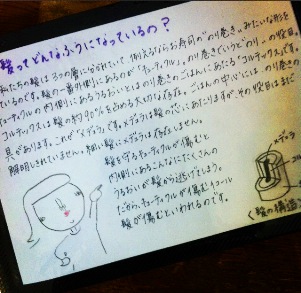 髪ってどんなふうになっているの？
私たちの髪は3つの層に分かれていて、例えるならお寿司の"のり巻き"みたいな形を
しているのです。髪の一番外側にあるのが「キューティクル」。のり巻きでいうと"のり"の役目。
キューティクルの内側にあるうるおいとはのり巻きのごはんにあたる「コルテックス」です。
コルテックスは髪の約90%を占める大切な存在。ごはんの中心には、のり巻きの
具があります。これが「メデュラ」です。メデュラは髪の芯にあたりますが、その役目はまだ
解明しきれていません。細い髪にメデュラは存在しません。
髪を守るキューティクルが傷むと
内側にあるこんなにたくさんの
うるおいが髪から逃げてしまう。
だから、キューティクルが傷むイコール
髪が傷むといわれるのです。
メデュラ
コ
キ
〈髪の構造〉